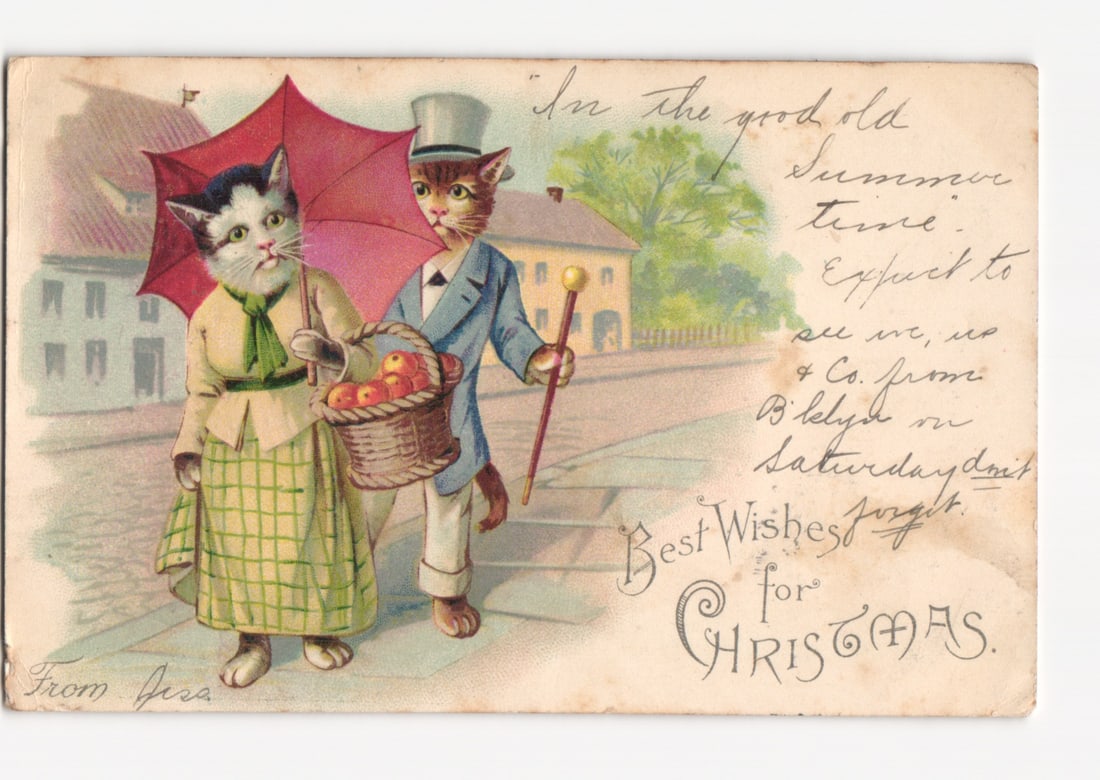 "In the good old
Summer
time".
Expect to
see we, us
& Co. from
B'klyn on
Saturday don't
forget.
Best Wishes
for
CHRISTMAS.
From Jess